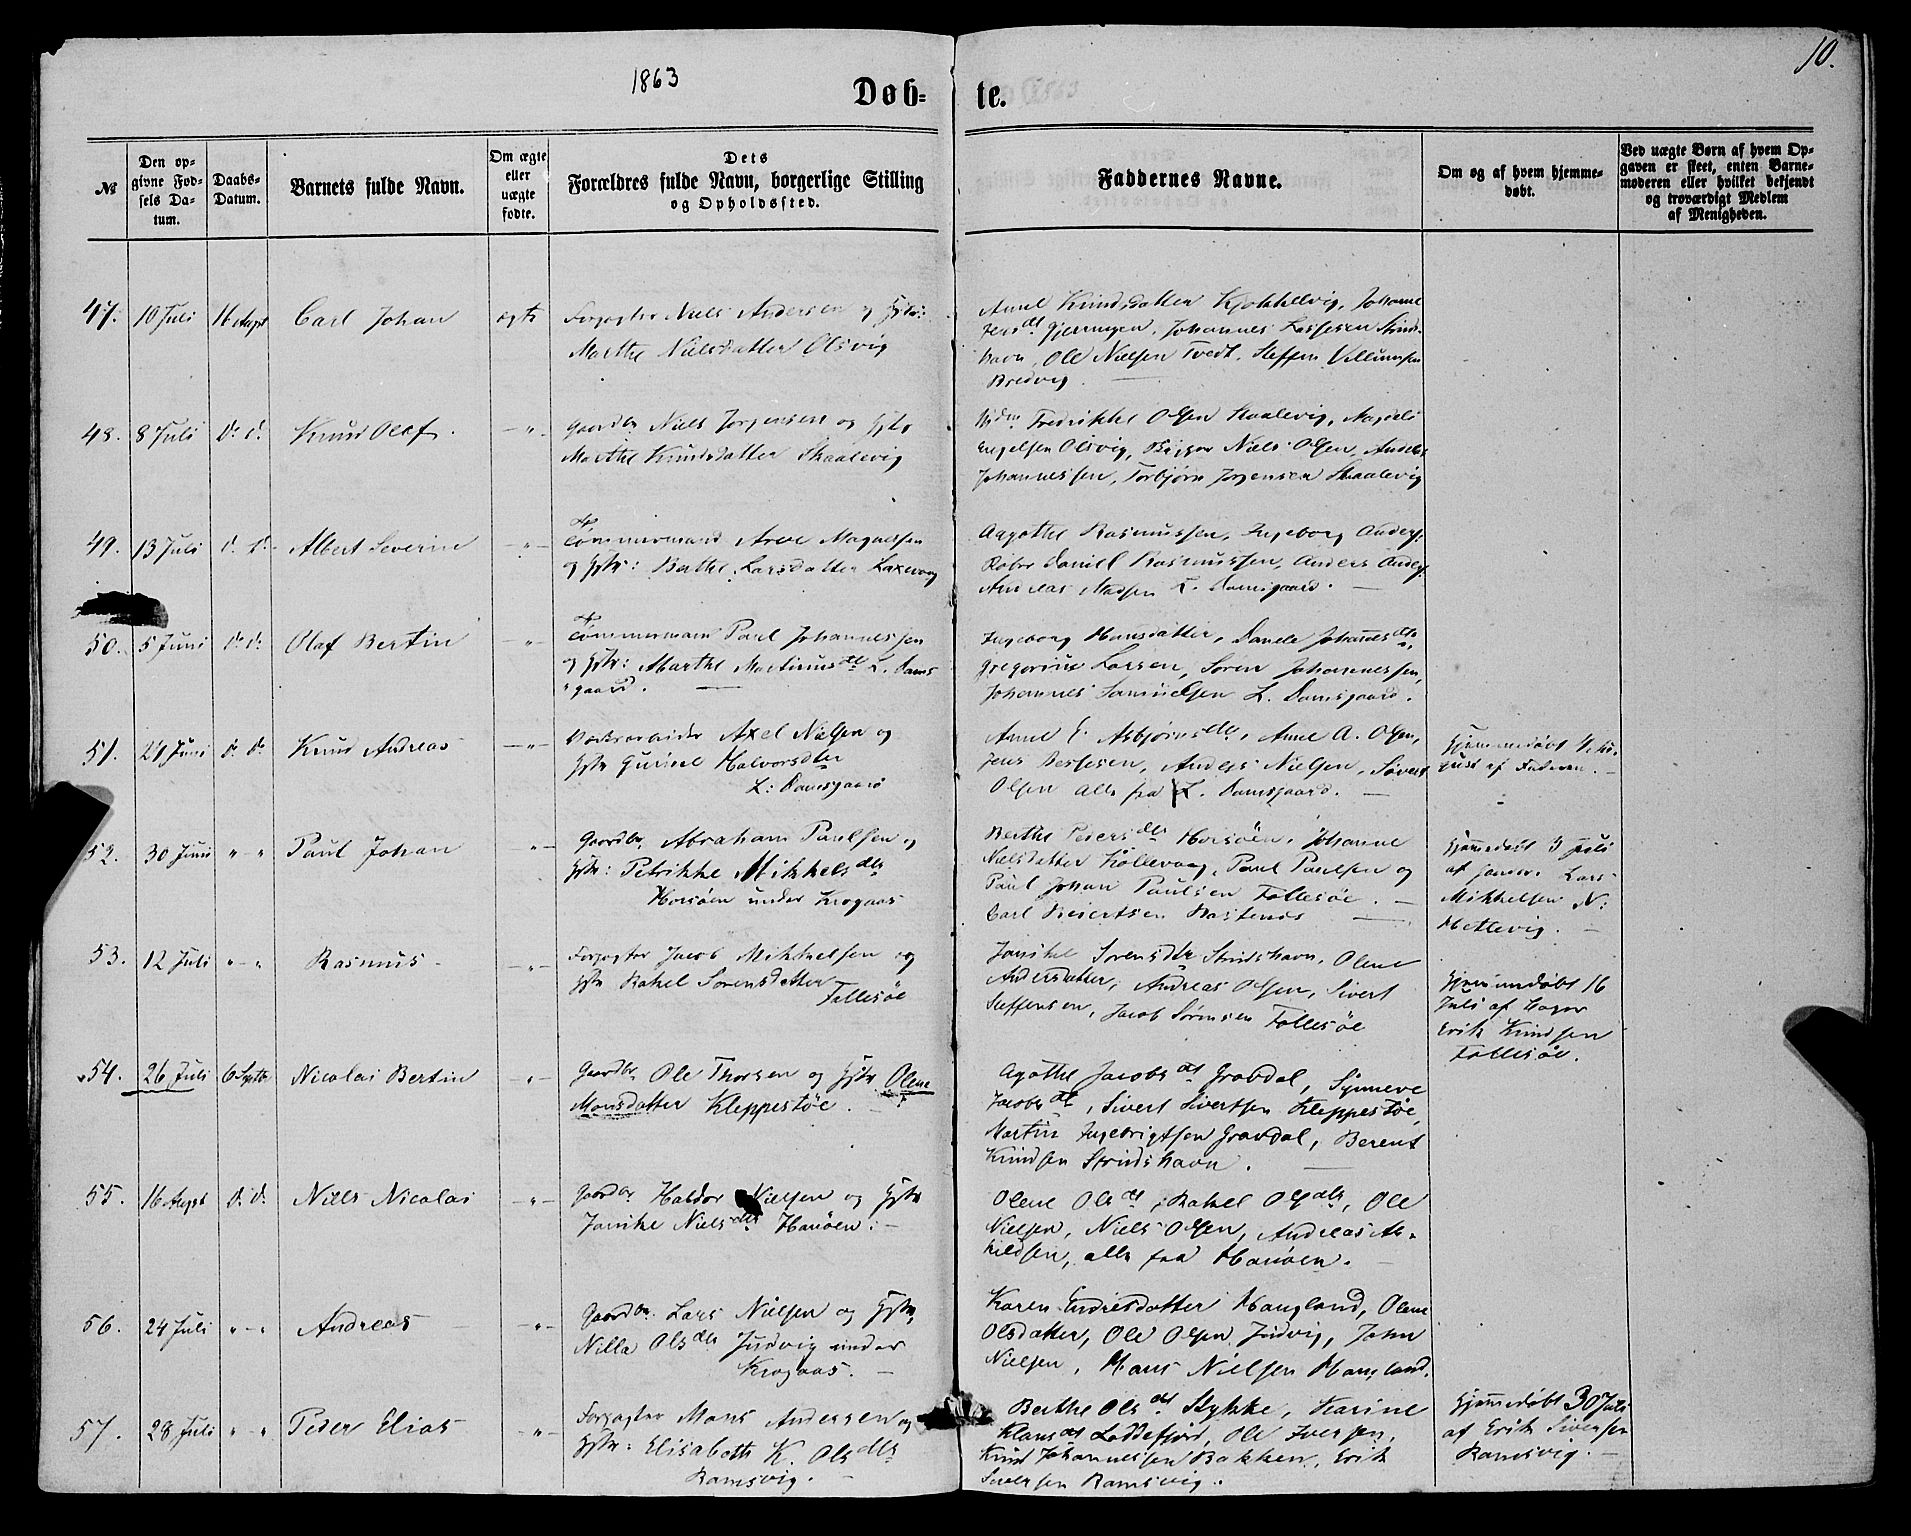 1863
10.
Døb-te.
№
Den op-
givne Fød-
sels Da-
tum.
Daabs-
Datum.
Barnets fulde Navn.
Om ægte
eller
uægte
fødte.
Dets
Forældres fulde Navn, borgerlige Stilling
og Opholdssted.
Faddernes Navne.
Om og af hvem hjemme-
døbt.
Ved uægte Børn af hvem Op-
gaven er skeet, enten Barne-
moderen eller hvilket bekjendt
og troværdigt Medlem
af Menigheden.
47. 10 Juli 16 Augst Carl Johan ægte Forpagter Niels Andersen og Hstr:
Marthe Nielsdatter Olsvig
Anne Knudsdatter Kjøkkelvig, Johanne
Jensdt Gjerningen, Johannes Lassesen Strids-
havn, Ole Nielsen Tvedt, Steffen Villumsen
Bredvig.
48. 8 Juli do do Knud Olaf. -"- Gaardbr Niels Jørgensen og Hstr
Marthe Knudsdatter Skaalevig
Fredrikke Olsen Skaalevig, Magdeli
Engelsen Olsvig, Niels Olsen, Anders
Johannessen, Torbjørn Jørgensen Skaalevig
49. 13 Juli d. d. Albert Severin -"- Tømmermand Arve Magnesen
og Hstr: Berthe Larsdatter Laxevaag
Aagathe Rasmussen, Ingeborg Anders.
Daniel Rasmussen, Anders Anders.
Andreas Madsen L. Damsgaard. —
50. 5 Juni d. d. Olaf Bertin " Tømmermand Paul Johannessen
og Hstr: Marthe Martinusdtr L. Dams
gaard. —
Ingeborg Hansdatter, Johannesdtr,
Gregorine Larsen, Søren Johannessen,
Johannes Samuelsen L. Damsgaard.
51. 24 Juni do do Knud Andreas -"- Værksarbeider Axel Nielsen og
Hstr Gurine Halvorsdtr
L: Damsgaard
Anne E. Asbjørnsdtr, Anne A. Olsen,
Jens Bessesen, Anders Nielsen, Sivert
Olsen alle fra L. Damsgaard. —
Hjemmedøbt
af Faderen. —
52. 30 Juni "-" Paul Johan -"- Gaardbr. Abraham Paulsen og
Hstr: Petrikke Mikkelsdtr
Horsøen under Krogaas
Berthe Pedersdtr Horsøen, Johanne
Nielsdatter Kollevaag, Paul Paulsen og
Paul Johan Paulsen Follesøe. —
Carl Beiertsen
Hjemmedøbt 5 Juli
af Lars
Mikkelsen N:
Hetlevig. —
53. 12 Juli "-" Rasmus -"- Forpagter Jacob Mikkelsen og
Hstr Rakel Sørensdatter
Follesøe
Janike Sørensdtr Stridshavn, Olene
Andersdatter, Andreas Olsen, Sivert
Steffensen, Jacob Sørensen Follesøe
Hjemmedøbt 16
Juli af
Erik Knudsen
Follesøe.
54. 26 Juli 6 Septbr Nicolai Bertin -"- Gaardbr. Ole Thorsen og Hstr Olene
Monsdatter Kleppestøe. —
Agathe Jacobsdt Gravdal, Synneve
Jacobsdt, Sivert Sivertsen Kleppestøe,
Martin Ingebrigtsen Gravdal, Berent
Knudsen Stridshavn. —
55. 16 Augst d. d. Niels Nicolai -"- Gaardbr Haldor Nielsen og Hstr
Janike Nielsdtr Hanøen: —
Olene Olsdt, Rakel Olsdtr, Ole
Nielsen, Niels Olsen, Andreas As-
kildsen, alle fra Hanøen. —
56. 24 Juli "-" Andreas -"- Gaardbr. Lars Nielsen og Hstr,
Nilla Olsdtr Judvig under
Krogaas. —
Karen Endresdatter Haugland, Olene
Olsdatter, Ole Olsen Judvig, John
Nielsen, Hans Nielsen Haugland.
57. 28 Juli "-" Peder Elias -"- Forpagter Mons Andersen og
Hstr: Elisabeth K. Olsdtr
Ramsvig. —
Berthe Olsdt Stykke, Karine
Klausdt Loddefjord, Ole Iversen,
Knud Johannessen Bakken, Erik
Siversen Ramsvig.
Hjemmedøbt 30 Juli
af Erik Siversen
Ramsvig. —